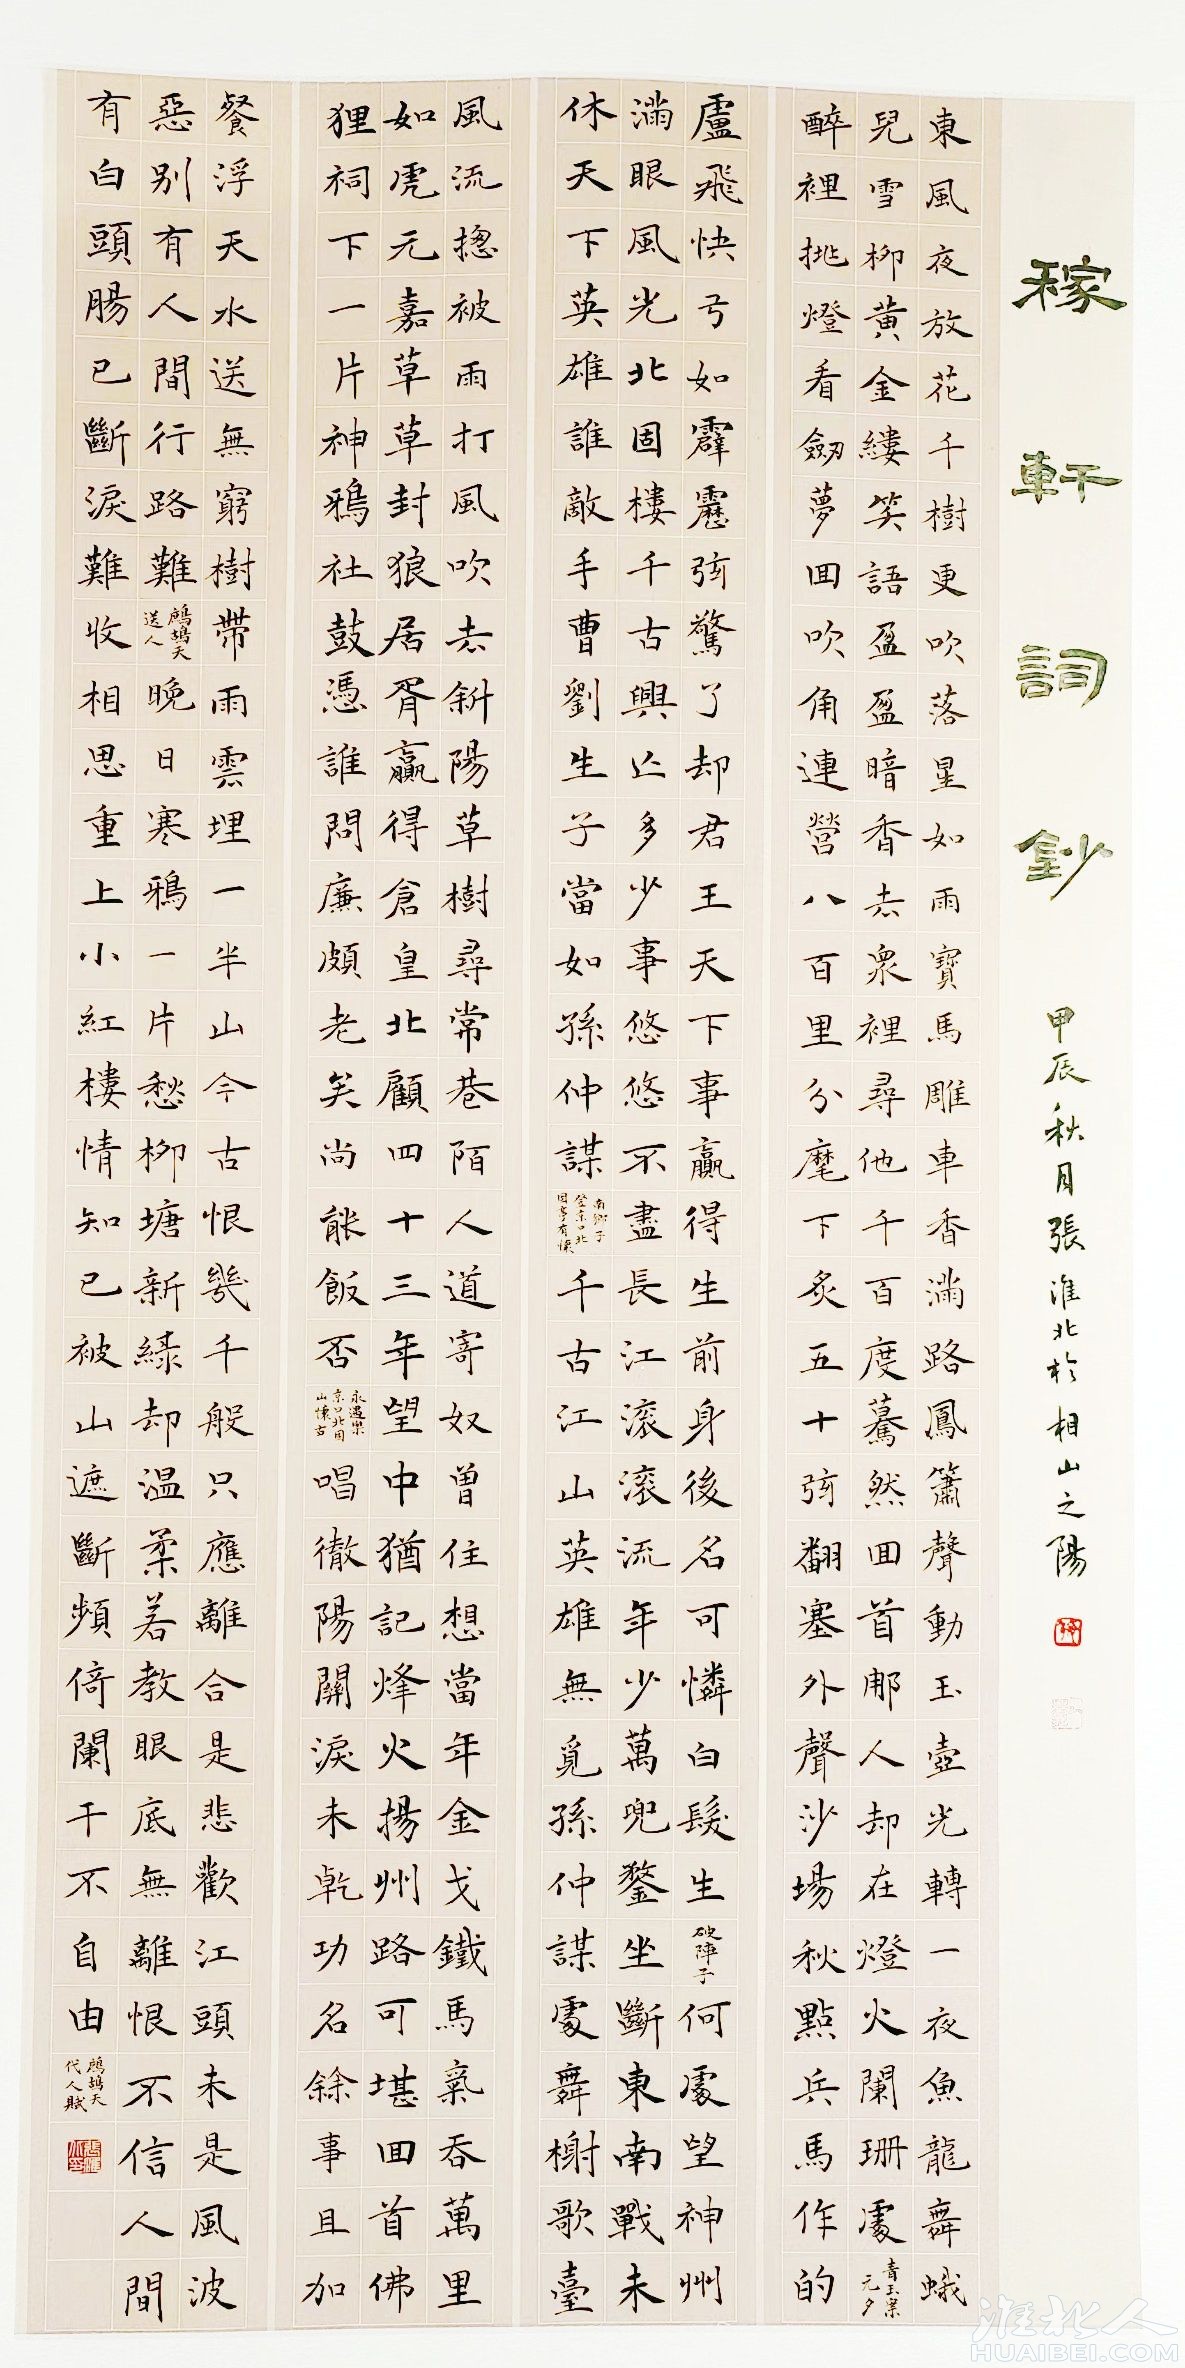 稼軒詞鈔
甲辰秋月張淮北於相山之陽
東風夜放花千樹更吹落星如雨寶馬雕車香滿路鳳簫聲動玉壺光轉一夜魚龍舞蛾
兒雪柳黃金縷笑語盈盈暗香去衆裡尋他千百度驀然回首那人却在燈火闌珊處
青玉案
元夕
醉裡挑燈看劒夢回吹角連營八百里分麾下炙五十弦翻塞外聲沙場秋點兵馬作的
盧飛快弓如霹靂弦驚了却君王天下事贏得生前身後名可憐白髮生
破陣子
何處望神州
滿眼風光北固樓千古興亡多少事悠悠不盡長江滾滾流年少萬兜鍪坐斷東南戰未
休天下英雄誰敵手曹劉生子當如孫仲謀
南鄉子
登京口北
固亭有懷
千古江山英雄無覓孫仲謀處舞榭歌臺
風流揔被雨打風吹去斜陽草樹尋常巷陌人道寄奴曾住想當年金戈鐵馬氣吞萬里
如虎元嘉草草封狼居胥贏得倉皇北顧四十三年望中猶記烽火揚州路可堪回首佛
狸祠下一片神鴉社鼓憑誰問廉頗老矣尚能飯否
永遇樂
京口北固
山懷古
唱徹陽關淚未乾功名餘事且加
餐浮天水送無窮樹帶雨雲埋一半山今古恨幾千般只應離合是悲歡江頭未是風波
惡別有人間行路難
鷓鴣天
送人
晚日寒鴉一片愁柳塘新綠却溫柔若教眼底無離恨不信人間
有白頭腸已斷淚難收相思重上小紅樓情知已被山遮斷頻倚闌干不自由
鷓鴣天
代人賦
淮北人
HUAIBEI.COM